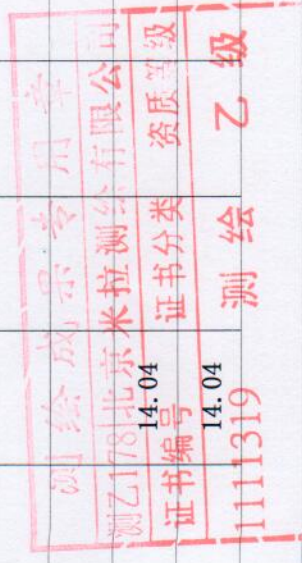 测绘成果专用章
测乙1178|北京米拉测绘有限公司
证书编号 证书分类 资质等级
1111319 测绘 乙级
14.04
14.04